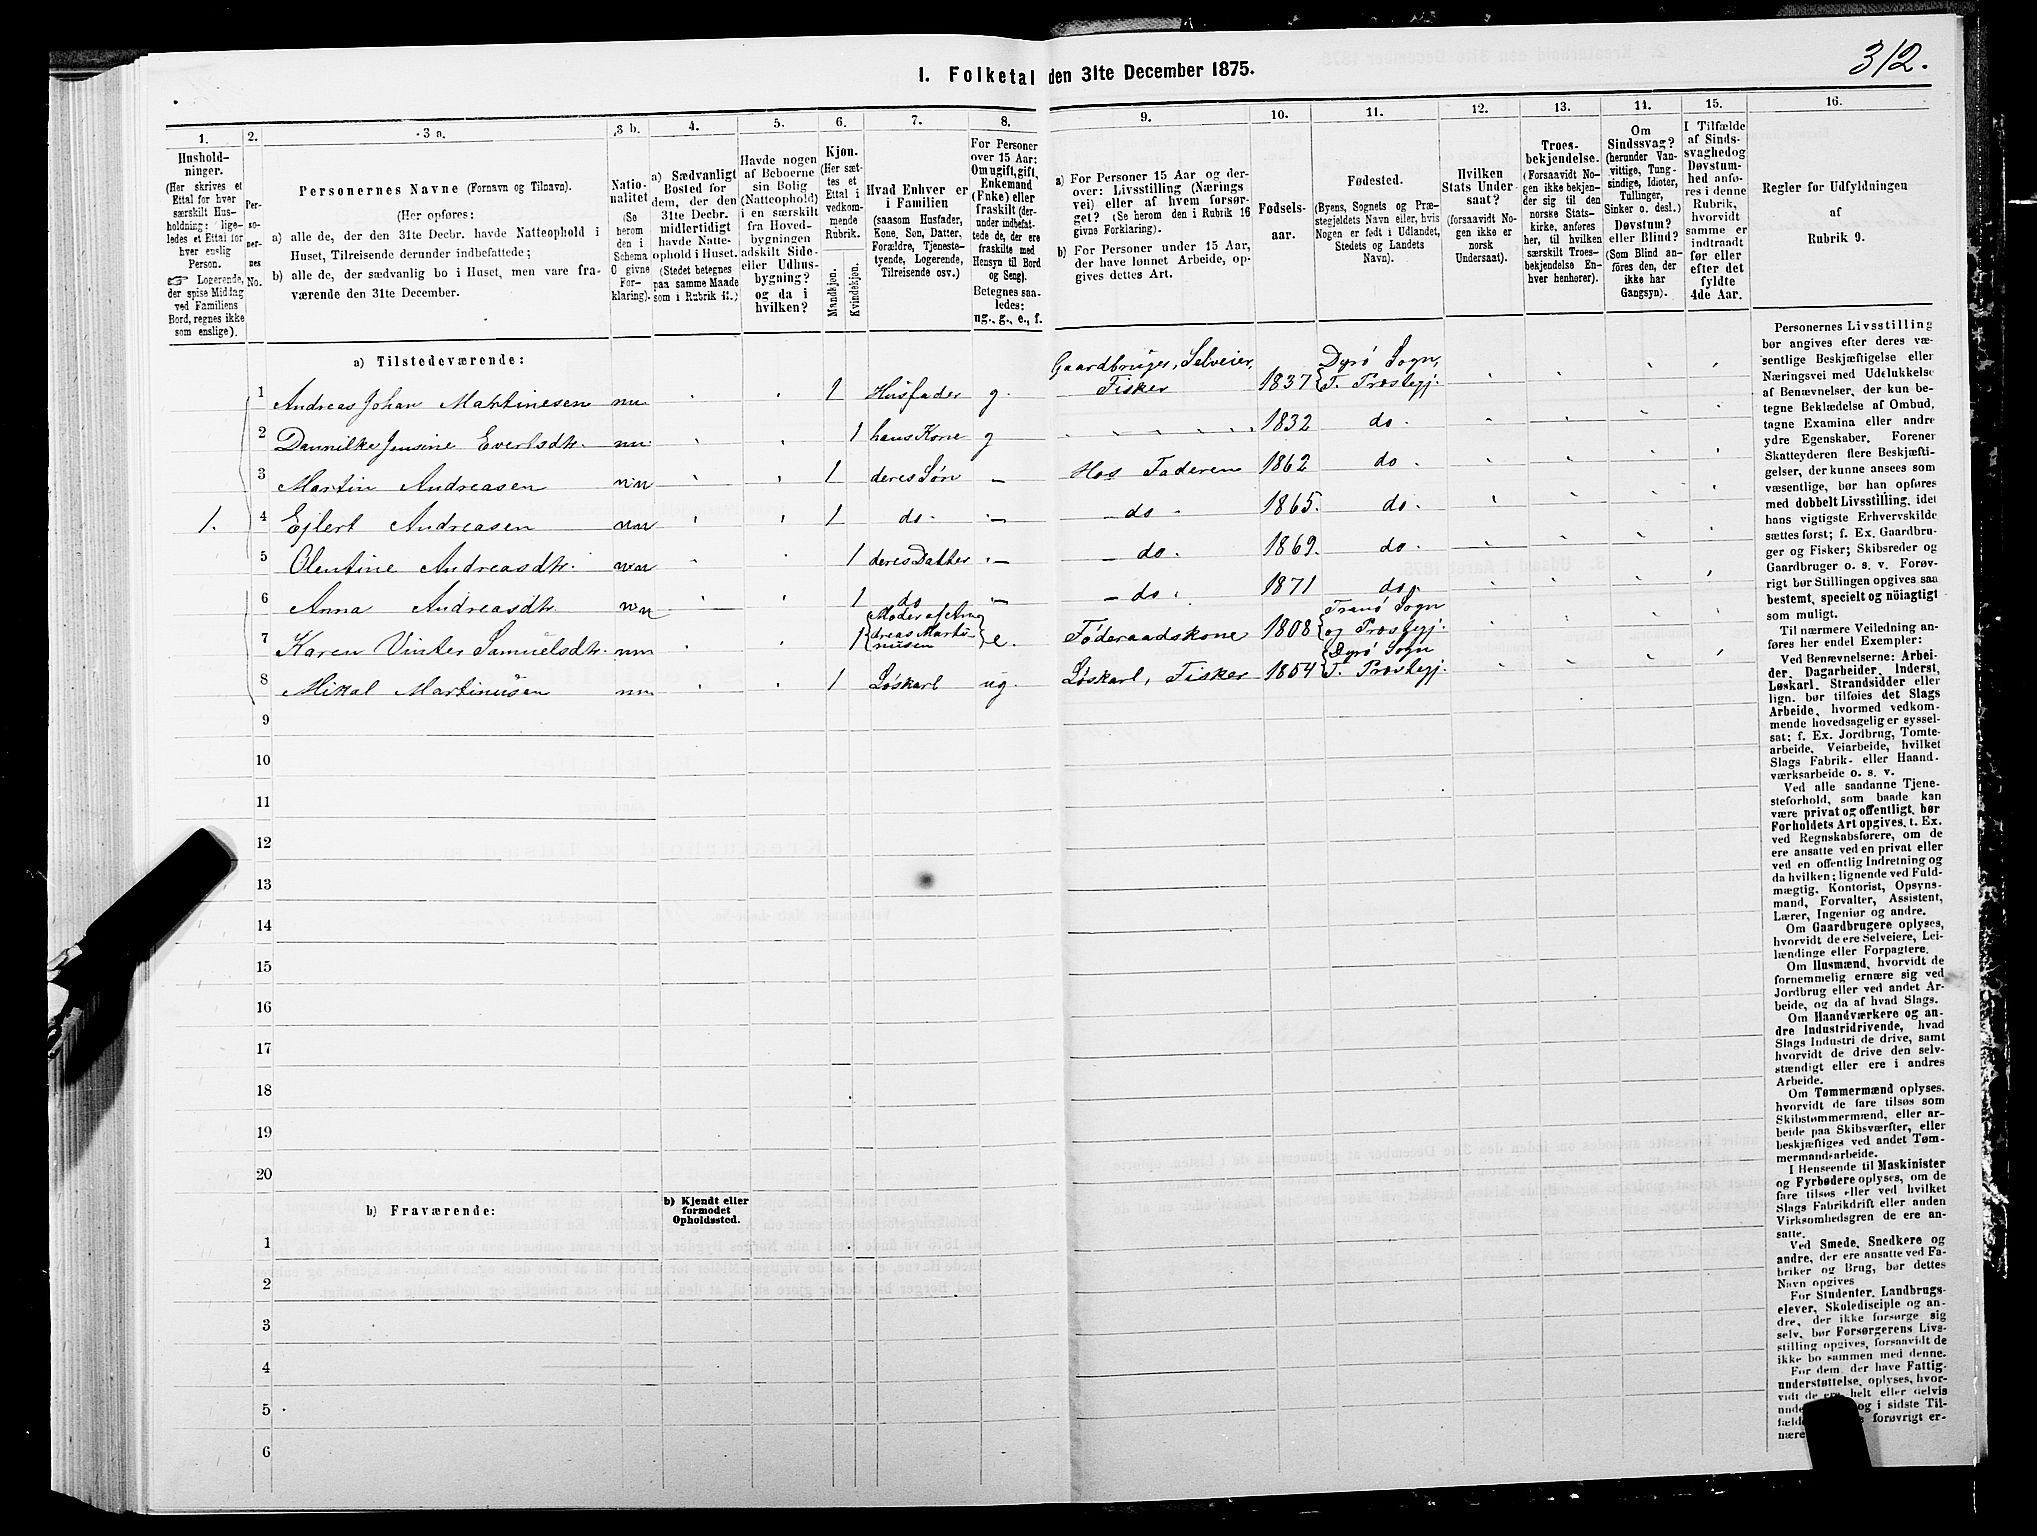 312.
I. Folketal den 31te December 1875.
1.
Hushold-
ninger.
(Her skrives et
Ettal for hver
særskilt Hus-
holdning; lige-
ledes et Ettal for
hver enslig
Person.
☞ Logerende,
der spise Middag
ved Familiens
Bord, regnes ikke
som enslige).
2.
Per-
soner-
nes
No.
3 a.
Personernes Navne (Fornavn og Tilnavn).
(Her opføres:
a) alle de, der den 31te Decbr. havde Natteophold i
Huset, Tilreisende derunder indbefattede;
b) alle de, der sædvanlig bo i Huset, men vare fra-
værende den 31te December.
3 b.
Natio-
nalitet
(Se
herom
den i
Schema
O givne
For-
klaring).
4.
a) Sædvanligt
Bosted for
dem, der den
31te Decbr.
midlertidigt
havde Natte-
ophold i Huset.
(Stedet betegnes
paa samme Maade
som i Rubrik 11.)
5.
Havde nogen
af Beboerne
sin Bolig
(Natteophold)
i en særskilt
fra Hoved-
bygningen
adskilt Side-
eller Udhus-
bygning?
og da i
hvilken?
6.
Kjøn.
(Her sæt-
tes et
Ettal i
vedkom-
mende
Rubrik.
Mandkjøn.
Kvindekjøn.
7.
Hvad Enhver er
i Familien
(saasom Husfader,
Kone, Søn, Datter,
Forældre, Tjeneste-
tyende, Logerende,
Tilreisende osv.)
8.
For Personer
over 15 Aar:
Om ugift, gift,
Enkemand
(Enke) eller
fraskilt (der-
under indbefat-
tede de, der ere
fraskilte med
Hensyn til Bord
og Seng).
Betegnes saa-
ledes:
ug., g., e., f.
9.
a) For Personer 15 Aar og der-
over: Livsstilling (Nærings
vei) eller af hvem forsør-
get? (Se herom den i Rubrik 16
givne Forklaring).
b) For Personer under 15 Aar,
der have lønnet Arbeide, op-
gives dettes Art.
10.
Fødsels-
aar.
11.
Fødested.
(Byens, Sognets og Præ-
stegjeldets Navn eller, hvis
Nogen er født i Udlandet,
Stedets og Landets
Navn).
12.
Hvilken
Stats Under-
saat?
(forsaavidt No-
gen ikke er
norsk
Undersaat).
13.
Troes-
bekjendelse.
(Forsaavidt No-
gen ikke bekjen-
der sig til den
norske Stats-
kirke, anføres
her, til hvilken
særskilt Troes-
bekjendelse En-
hver henhører).
14.
Om
Sindssvag?
(herunder Van-
vittige, Tung-
sindige, Idioter,
Tullinger,
Sinker o. desl.)
Døvstum?
eller Blind?
(Som Blind an-
føres den, der
ikke har
Gangsyn).
15.
I Tilfælde
af Sinds-
svaghed og
Døvstum-
hed anfø-
res i denne
Rubrik,
hvorvidt
samme er
indtraadt
før eller
efter det
fyldte
4de Aar.
16.
Regler for Udfyldningen
af
Rubrik 9.
a) Tilstedeværende:
1 Andreas Johan Martinesen nn 1 Husfader g. Gaardbruger, Selveier, Fisker 1837 Dyrø Sogn, T. Prostegj.
2 Dannilke Jensine Evertsdtr. nn. 1 hans Kone g 1832 do.
3 Martin Andreasen nn 1 deres Søn — Hos Faderen 1862 do
1. 4 Ejlert Andreasen nn 1 do. — do 1865. do.
5 Olentine Andreasdtr. nn 1 deres Datter — do. 1869. do.
6 Anna Andreasdtr nn 1 do — do 1871 do,
7 Karen Vinter Samuelsdtr. nn 1 Moder af An dreas Marti nusen e. Føderaadskone 1808 Tranø Sogn og Prostegj.
8 Mikal Martinusen nn 1 Løskarl ug. Løskarl, Fisker 1854 Dyrø Sogn T. Prostegj.
9
10
11
12
13
14
15
16
17
18
19
20
b) Fraværende:
b) Kjendt eller
formodet
Opholdssted.
1
2
3
4
5
6
Personernes Livsstilling
bør angives efter deres væ-
sentlige Beskjæftigelse eller
Næringsvei med Udelukkelse
af Benævnelser, der kun be-
tegne Beklædelse af Ombud,
tagne Examina eller andre
ydre Egenskaber. Forener
Skatteyderen flere Beskjæfti-
gelser, der kunne ansees som
væsentlige, bør han opføres
med dobbelt Livsstilling, idet
hans vigtigste Erhvervskilde
sættes først; f. Ex. Gaardbru-
ger og Fisker; Skibsreder og
Gaardbruger o. s. v. Forøv-
rigt bør Stillingen opgives saa
bestemt, specielt og nöiagtigt
som muligt.
Til nærmere Veiledning an-
føres her endel Exempler:
Ved Benævnelserne: Arbei-
der, Dagarbeider, Inderst,
Løskarl, Strandsidder eller
lign. bør tilføies det Slags
Arbeide, hvormed vedkom-
mende hovedsagelig er syssel-
sat; f. Ex. Jordbrug, Tomte-
arbeide, Veiarbeide, hvilket
Slags Fabrik- eller Haand-
værksarbeide o. s. v.
Ved alle saadanne Tjene-
steforhold, som baade kan
være privat og offentligt, bør
Forholdets Art opgives, t. Ex.
ved Regnskabsførere, om de
ere ansatte ved en privat eller
ved en offentlig Indretning og
da hvilken; lignende ved Fuld-
mægtig, Kontorist, Opsyns-
mand, Forvalter, Assistent,
Lærer, Ingeniør og andre.
Om Gaardbrugere oplyses,
hvorvidt de ere Selveiere, Lei-
lændinge eller Forpagtere.
Om Husmænd, hvorvidt de
fornemmelig ernære sig ved
Jordbrug eller ved andet Ar-
beide, og da af hvad Slags.
Om Haandværkere og an-
dre Industridrivende, hvad
Slags Industri de drive, samt
hvorvidt de drive den selv-
stændigt eller ere i andres
Arbeide.
Om Tømmermænd oplyses,
hvorvidt de fare tilsøs som
Skibstømmermænd, eller ar-
beide paa Skibsværfter, eller
beskjæftiges ved andet Tøm-
mermandsarbeide.
I Henseende til Maskinister
og Fyrbødere oplyses, om de
fare tilsøs eller ved hvilket
Slags Fabrikdrift eller anden
Virksomhedsgren de ere an-
satte.
Ved Smede, Snedkere og
andre, der ere ansatte ved Fa-
briker og Brug, bør dettes
Navn opgives
For Studenter, Landbrugs-
elever, Skoledisciple og an-
dre, der ikke forsørge sig
selv, bør Forsørgerens Livs-
stilling opgives, forsaavidt de
ikke bo sammen med denne.
For dem, der have Fattig-
understøttelse, oplyses, hvor-
vidt de ere helt eller delvis
og i sidste Til-
forøvrigt er-